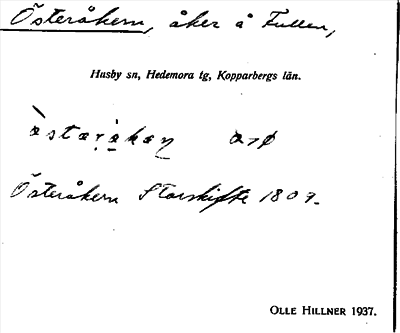 Österåkern, åker å Fullen,
Husby sn, Hedemora tg, Kopparbergs län.
Österåkern Storskifte 1809.
OLLE HILLNER 1937.